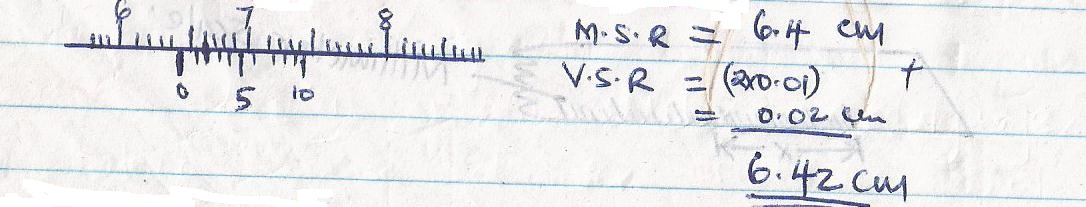 6 7 8
0 5 10
M.S.R = 6.4 cm
V.S.R = (2x0.01) +
= 0.02 cm
6.42 cm